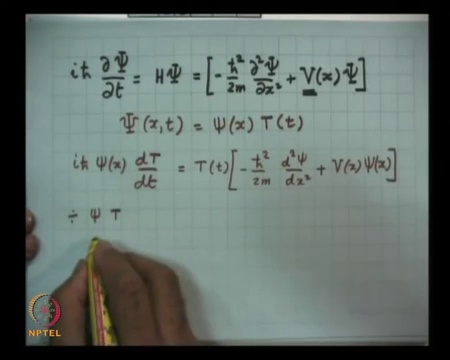 iħ ∂Ψ/∂t = HΨ = [-ħ²/2m ∂²Ψ/∂x² + V(x) Ψ]
Ψ(x,t) = ψ(x) T(t)
iħ ψ(x) dT/dt = T(t)[-ħ²/2m d²ψ/dx² + V(x) ψ(x)]
÷ ψ T
NPTEL